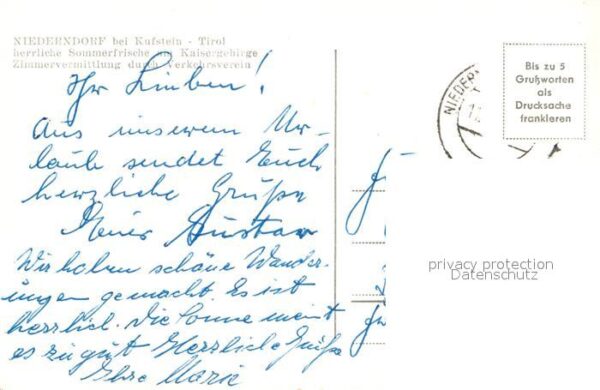 NIEDERNDORF bei Kufstein - Tirol
herrliche Sommerfrische am Kaisergebirge
Zimmervermittlung durch Verkehrsverein
Ihr Lieben!
Aus unserem Ur-
laub sendet Euch
herzliche Grüße
Euer Gustav
Wir haben schöne Wander-
ungen gemacht. Es ist
herrlich. Die Sonne meint
es zu gut. Herzliche Grüße
Ihre Maria
NIEDERN
Bis zu 5
Grußworten
als
Drucksache
frankieren
privacy protection
Datenschutz